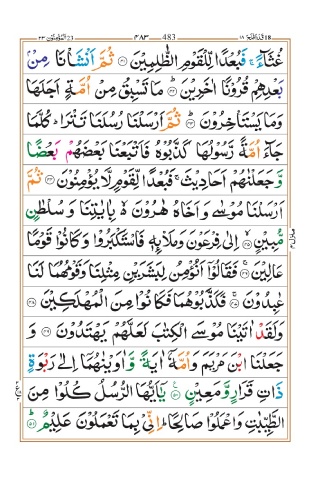 قد افلح ١٨ 483 ٤٨٣ المؤمنون ٢٣
غُثَآءً ۚ فَبُعْدًا لِّلْقَوْمِ الظّٰلِمِيْنَ ﴿۴۱﴾ ثُمَّ اَنْشَاْنَا مِنْۢ
بَعْدِهِمْ قُرُوْنًا اٰخَرِيْنَ ﴿۴۲﴾ مَا تَسْبِقُ مِنْ اُمَّةٍ اَجَلَهَا
وَمَا يَسْتَاْخِرُوْنَ ﴿۴۳﴾ ثُمَّ اَرْسَلْنَا رُسُلَنَا تَتْرَا ؕ كُلَّمَا
جَآءَ اُمَّةً رَّسُوْلُهَا كَذَّبُوْهُ فَاَتْبَعْنَا بَعْضَهُمْ بَعْضًا
وَّجَعَلْنٰهُمْ اَحَادِيْثَ ۚ فَبُعْدًا لِّقَوْمٍ لَّا يُؤْمِنُوْنَ ﴿۴۴﴾ ثُمَّ
اَرْسَلْنَا مُوْسٰى وَاَخَاهُ هٰرُوْنَ ۙ بِاٰيٰتِنَا وَسُلْطٰنٍ
مُّبِيْنٍ ﴿۴۵﴾ اِلٰى فِرْعَوْنَ وَمَلَا۟ئِهٖ فَاسْتَكْبَرُوْا وَكَانُوْا قَوْمًا
عَالِيْنَ ﴿۴۶﴾ فَقَالُوْۤا اَنُؤْمِنُ لِبَشَرَيْنِ مِثْلِنَا وَقَوْمُهُمَا لَنَا
عٰبِدُوْنَ ﴿۴۷﴾ فَكَذَّبُوْهُمَا فَكَانُوْا مِنَ الْمُهْلَكِيْنَ ﴿۴۸﴾
وَلَقَدْ اٰتَيْنَا مُوْسَى الْكِتٰبَ لَعَلَّهُمْ يَهْتَدُوْنَ ﴿۴۹﴾ وَ
جَعَلْنَا ابْنَ مَرْيَمَ وَاُمَّهٗۤ اٰيَةً وَّاٰوَيْنٰهُمَاۤ اِلٰى رَبْوَةٍ
ذَاتِ قَرَارٍ وَّمَعِيْنٍ ﴿۵۰﴾ يٰۤاَيُّهَا الرُّسُلُ كُلُوْا مِنَ
الطَّيِّبٰتِ وَاعْمَلُوْا صَالِحًا ؕ اِنِّىْ بِمَا تَعْمَلُوْنَ عَلِيْمٌ ﴿۵۱﴾